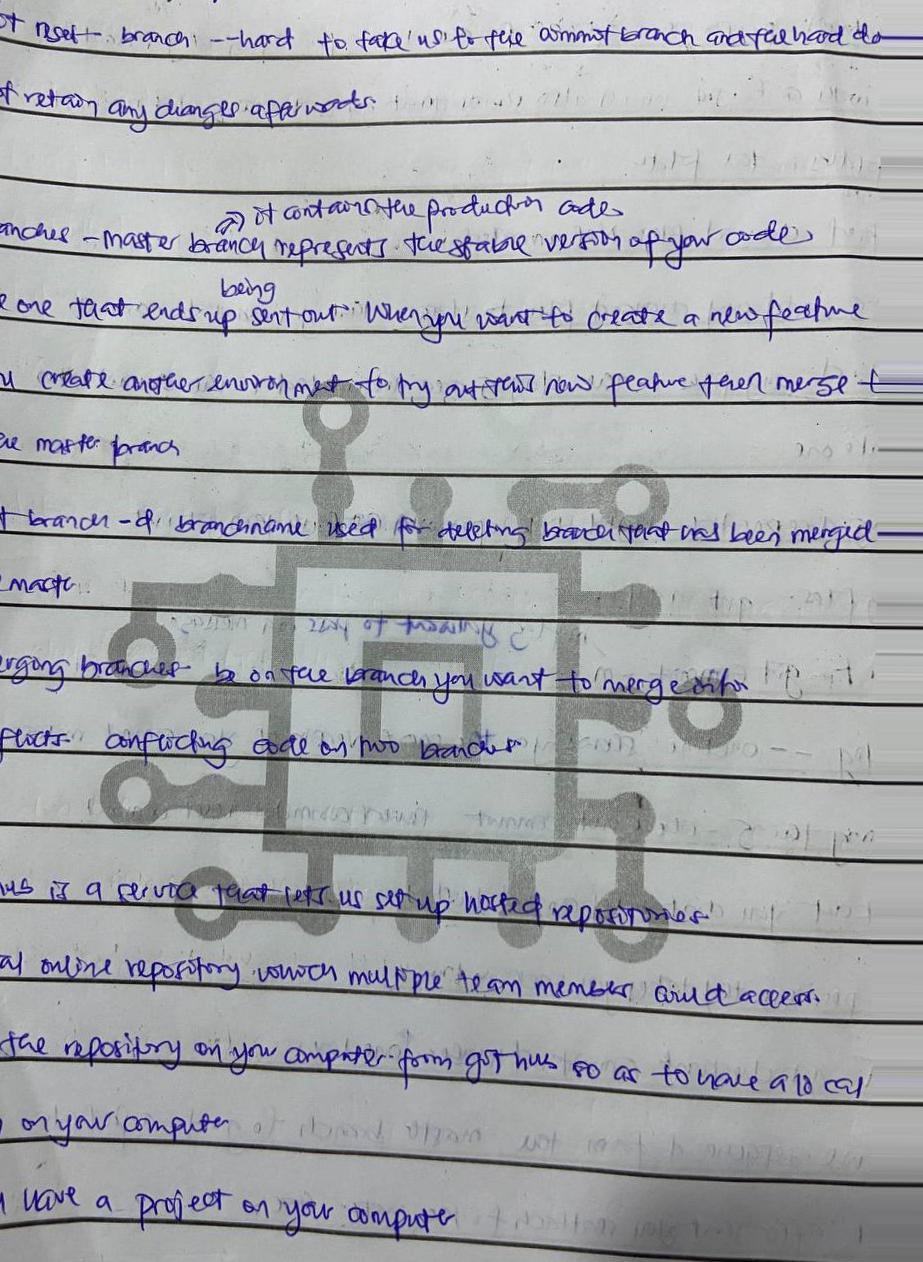 reset branch --hard to take us to the commit branch and the hard do
retain any changes afterwards.
it contains the production code
- master branch represents the stable version of your code
being
one that ends up sent out. When you want to create a new feature
create another environment to try out this new feature then merge t
master branch
branch -d branchname used for deleting branch that has been merged
branches be on the branch you want to merge onto
conflicting code on two branches
is a service that lets us set up hosted repositories
online repository which multiple team members could access.
the repository on your computer form git hub so as to have a local
on your computer
have a project on your computer